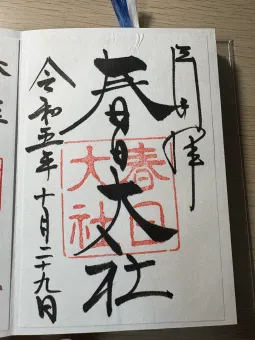 奉拝
春日大社
春日
大社
令和五年十月二十九日